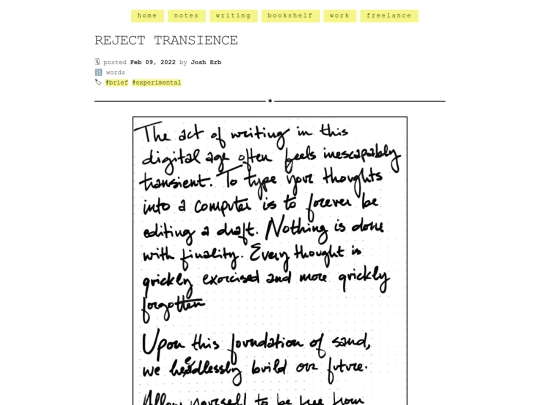 home notes writing bookshelf work freelance
REJECT TRANSIENCE
posted Feb 09, 2022 by Josh Erb
words
#brief #experimental
The act of writing in this
digital age often feels inescapably
transient. To type your thoughts
into a computer is to forever be
editing a draft. Nothing is done
with finality. Every thought is
quickly exorcised and more quickly
forgotten
Upon this foundation of sand,
we heedlessly build our future.
Allow yourself to be free from